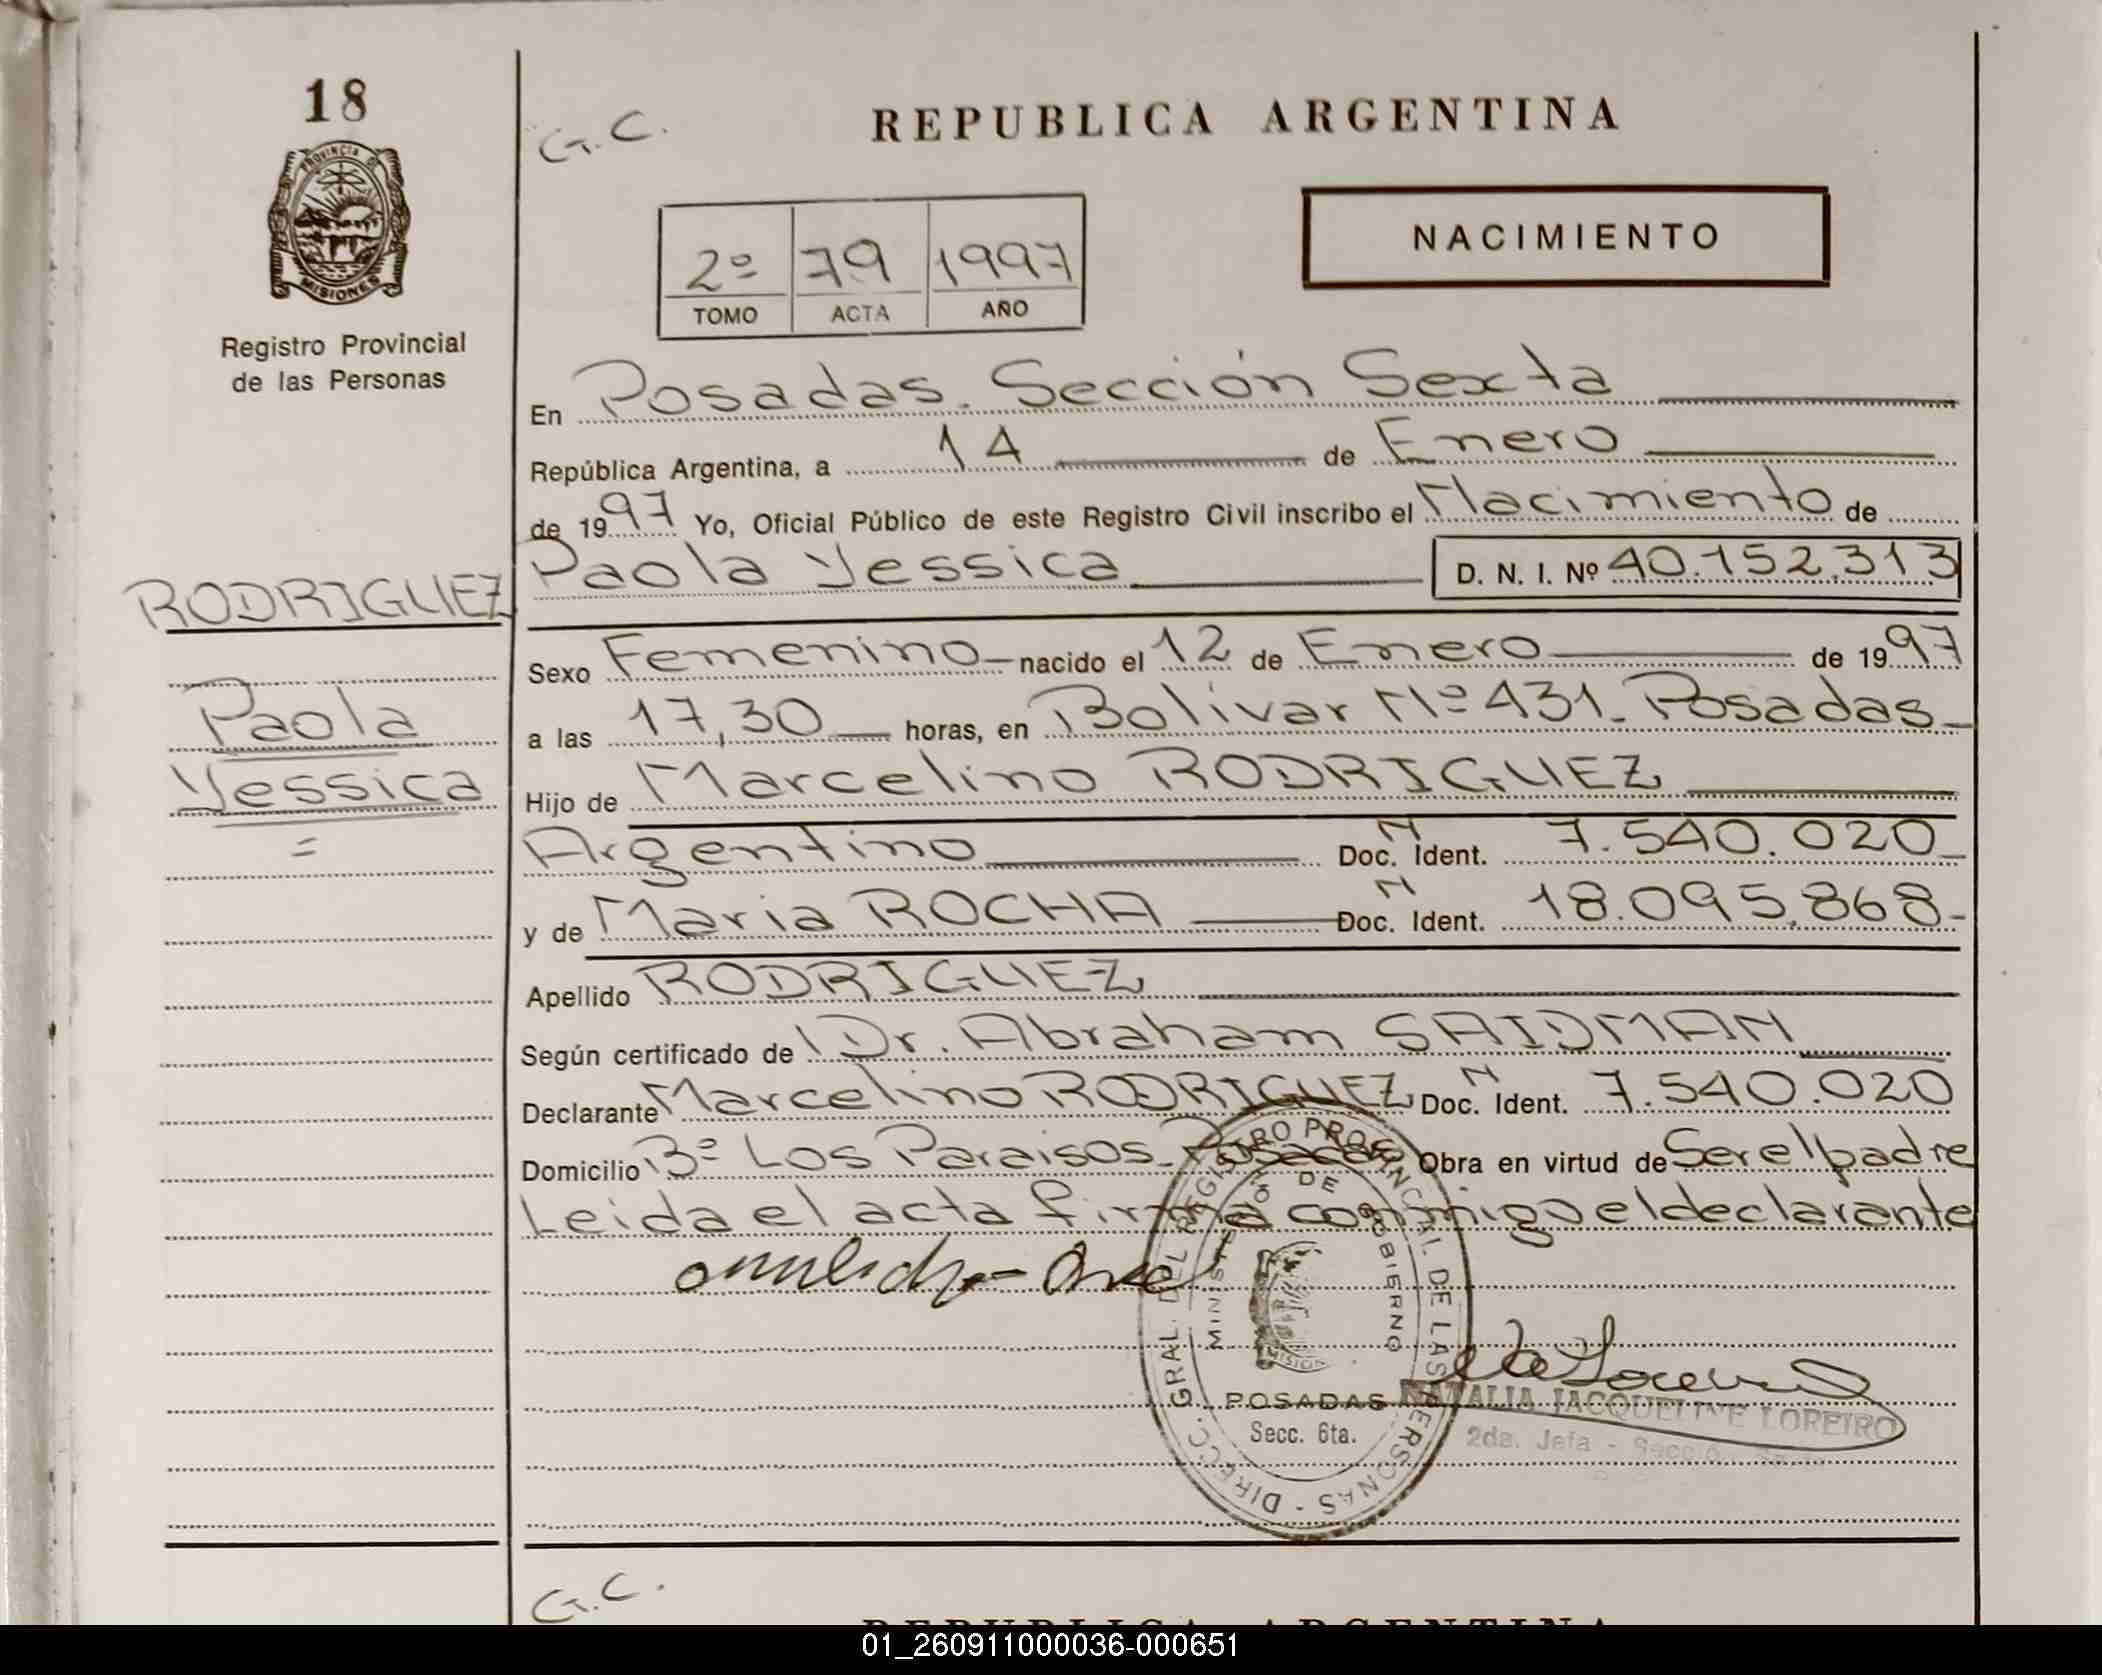 18
PROVINCIA DE
MISIONES
Registro Provincial
de las Personas
RODRIGUEZ
Paola
Yessica
=
G.C.
REPUBLICA ARGENTINA
2º 79 1997
TOMO ACTA AÑO
NACIMIENTO
En Posadas. Sección Sexta
República Argentina, a 14 de Enero
de 1997 Yo, Oficial Público de este Registro Civil inscribo el Nacimiento de
Paola Yessica D. N. I. Nº 40.152.313
Sexo Femenino nacido el 12 de Enero de 1997
a las 17,30 horas, en Bolivar Nº 431. Posadas
Hijo de Marcelino RODRIGUEZ
Argentino Doc. N Ident. 7.540.020
y de Maria ROCHA Doc. N Ident. 18.095.868
Apellido RODRIGUEZ
Según certificado de Dr. Abraham SAIDMAN
Declarante Marcelino RODRIGUEZ Doc. N Ident. 7.540.020
Domicilio Bº Los Paraisos. Posadas Obra en virtud de Ser el padre
Leida el acta firma conmigo el declarante
DIRECC. GRAL. DEL REGISTRO PROVINCIAL DE LAS PERSONAS -
MINISTERIO DE GOBIERNO
POSADAS
Secc. 6ta.
NATALIA JACQUELINE LOREIRO
2da. Jefa -
G.C.
REPUBLICA ARGENTINA
01_260911000036-000651